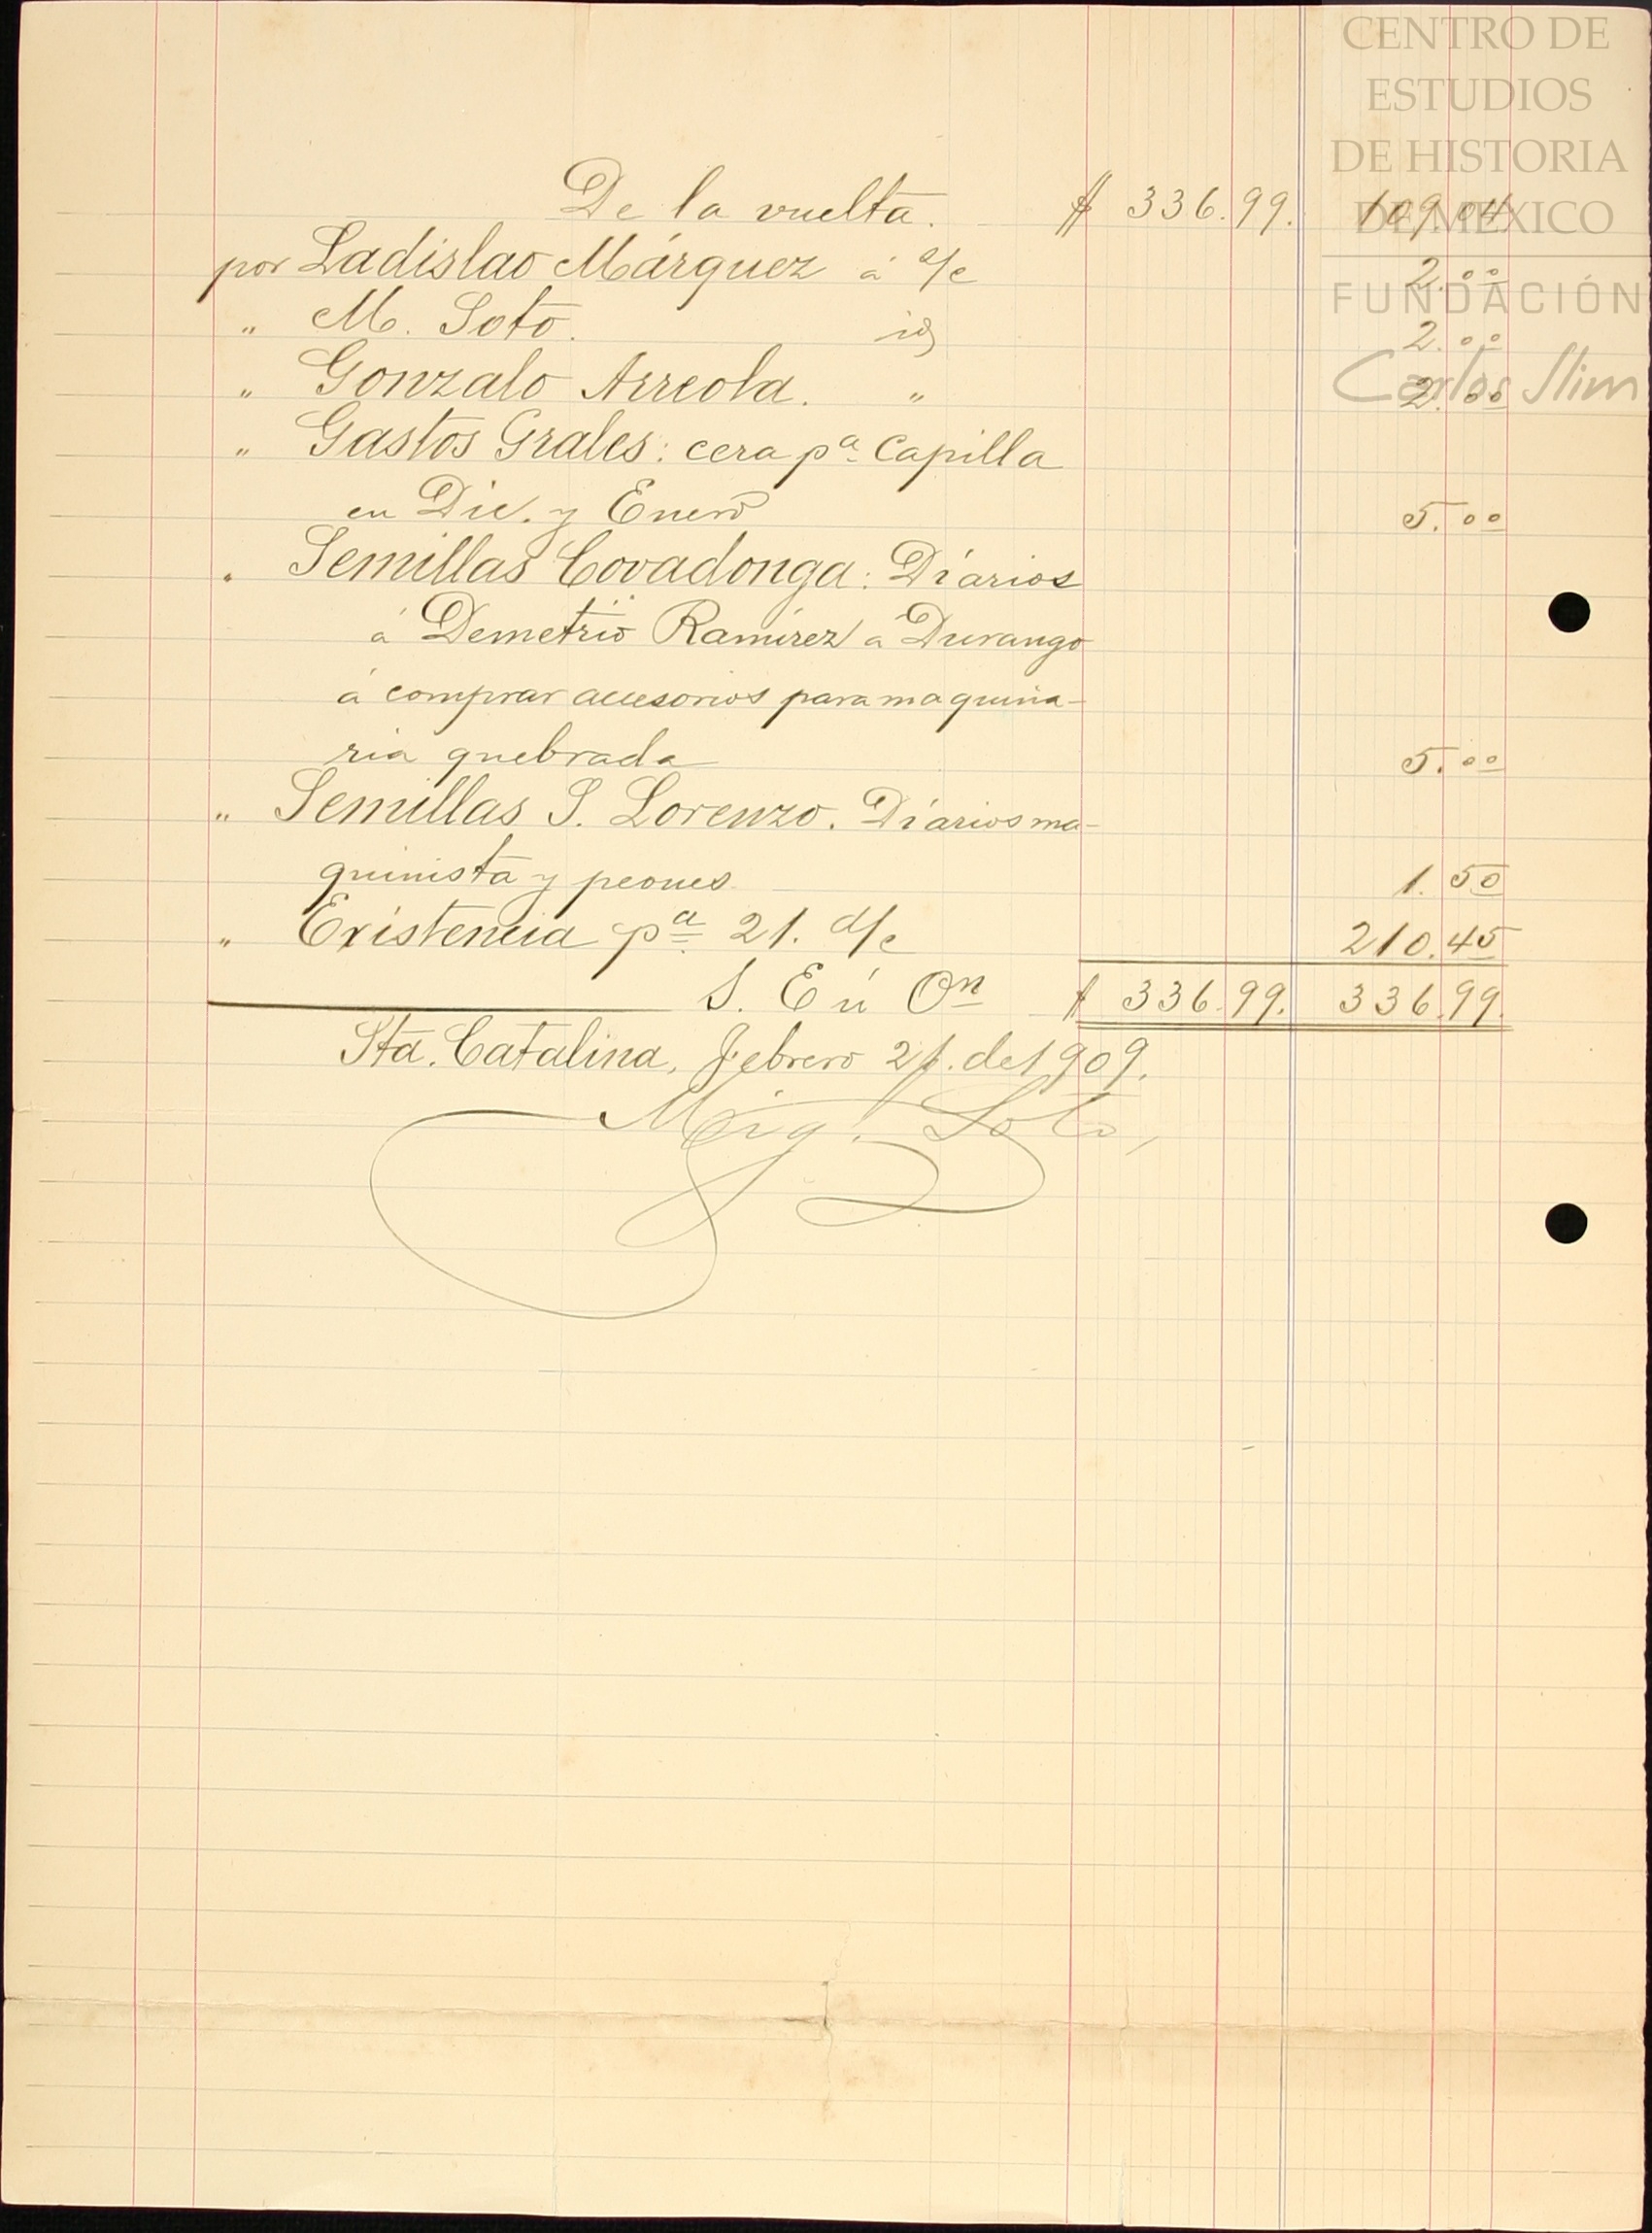 CENTRO DE
ESTUDIOS
DE HISTORIA
DE MÉXICO
FUNDACIÓN
Carlos Slim
De la vuelta. $ 336.99. 109.04
por Ladislao Márquez á c/c 2.00
" M. Soto. id 2.00
" Gonzalo Arreola. " 2.00
" Gastos Grales: cera pa. Capilla
en Dic. y Enero 5.00
" Semillas Covadonga: Diarios
á Demetrio Ramírez á Durango
á comprar accesorios para maquina-
ria quebrada 5.00
" Semillas S. Lorenzo. Diarios ma-
quinista y peones 1.50
" Existencia pa. 21. d/c 210.45
S. E ú On $ 336.99. 336.99.
Sta. Catalina, Febrero 21. de 1909.
Mig. Soto,